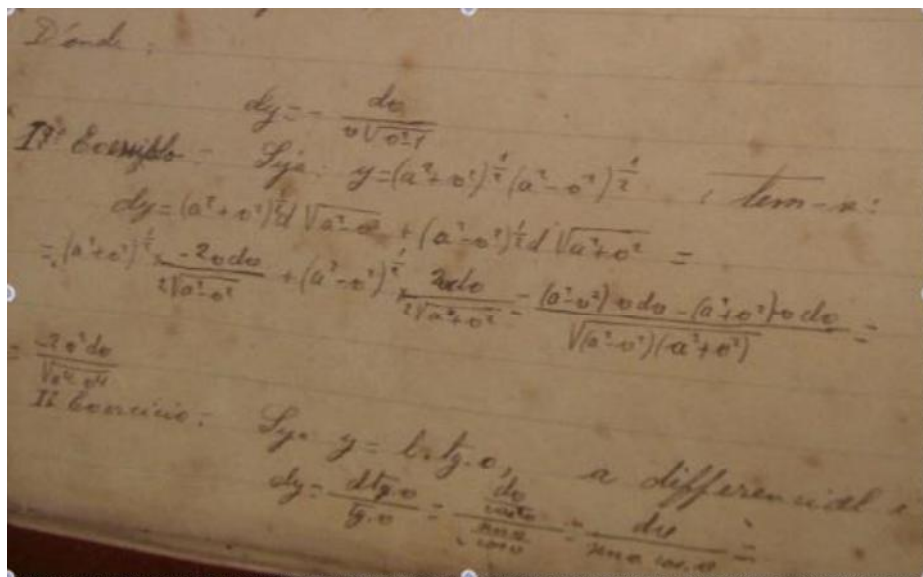 D'onde :
dy = - dv / v√(v²-1)
Iº Exemplo = Seja: y = (a²+v²)^½ (a²-v²)^½ ; tem-se:
dy = (a²+v²)^½ d √(a²-v²) + (a²-v²)^½ d √(a²+v²) =
= (a²+v²)^½ × -2vdv / 2√(a²-v²) + (a²-v²)^½ × 2vdv / 2√(a²+v²) = (a²-v²)vdv - (a²+v²)vdv / √((a²-v²)(a²+v²)) =
= -2v³dv / √(a⁴-v⁴)
II Exercicio: Seja y = lr tg.v, a differencial
dy = dtg.v / tg.v = dv / cos²v / sen v / cos v = dv / sen v cos.v =